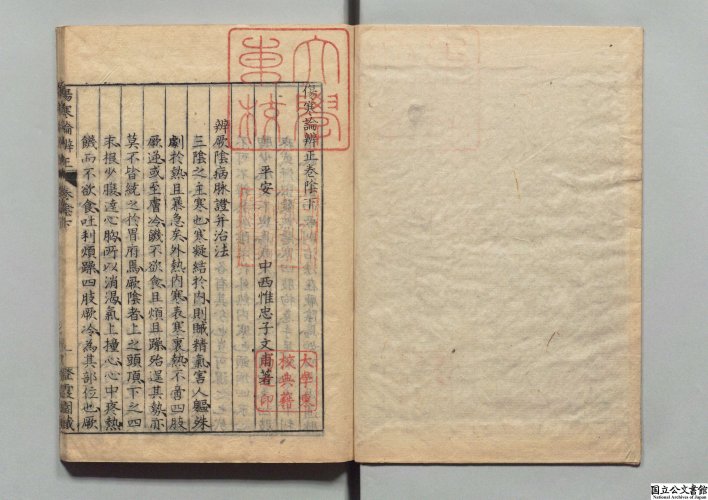 傷寒論辨正卷陰下
平安 中西惟忠子文甫著
辨厥陰病脉證并治法
三陰之主寒也寒凝結於内則賊精氣害人軀殊
劇於熱且暴急矣外熱内寒表寒裏熱不啻四肢
厥逆或至膚冷饑不欲食且煩且躁殆逞其熱亦
莫不皆統之於胃府焉厥陰者上之頭項下之四
末根少腹達心胸所以消渴氣上撞心心中疼熱
饑而不欲食吐利煩躁四肢厥冷為其部位也厥
傷寒論辨正 卷陰下
一
大學東校
大學東校典籍印
国立公文書館
National Archives of Japan